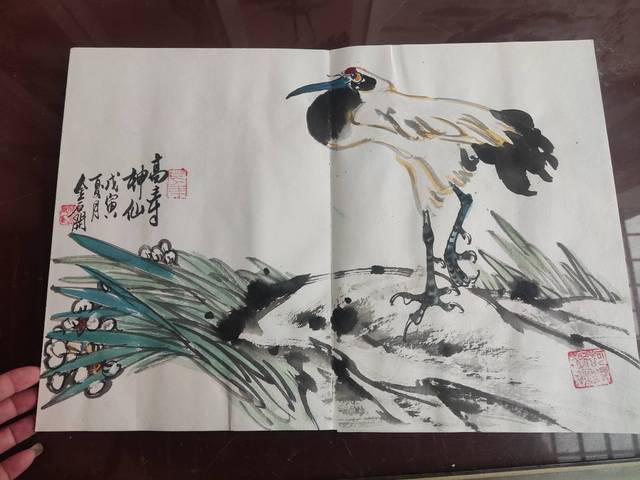 高寿
神仙
戊寅
夏月
金石開